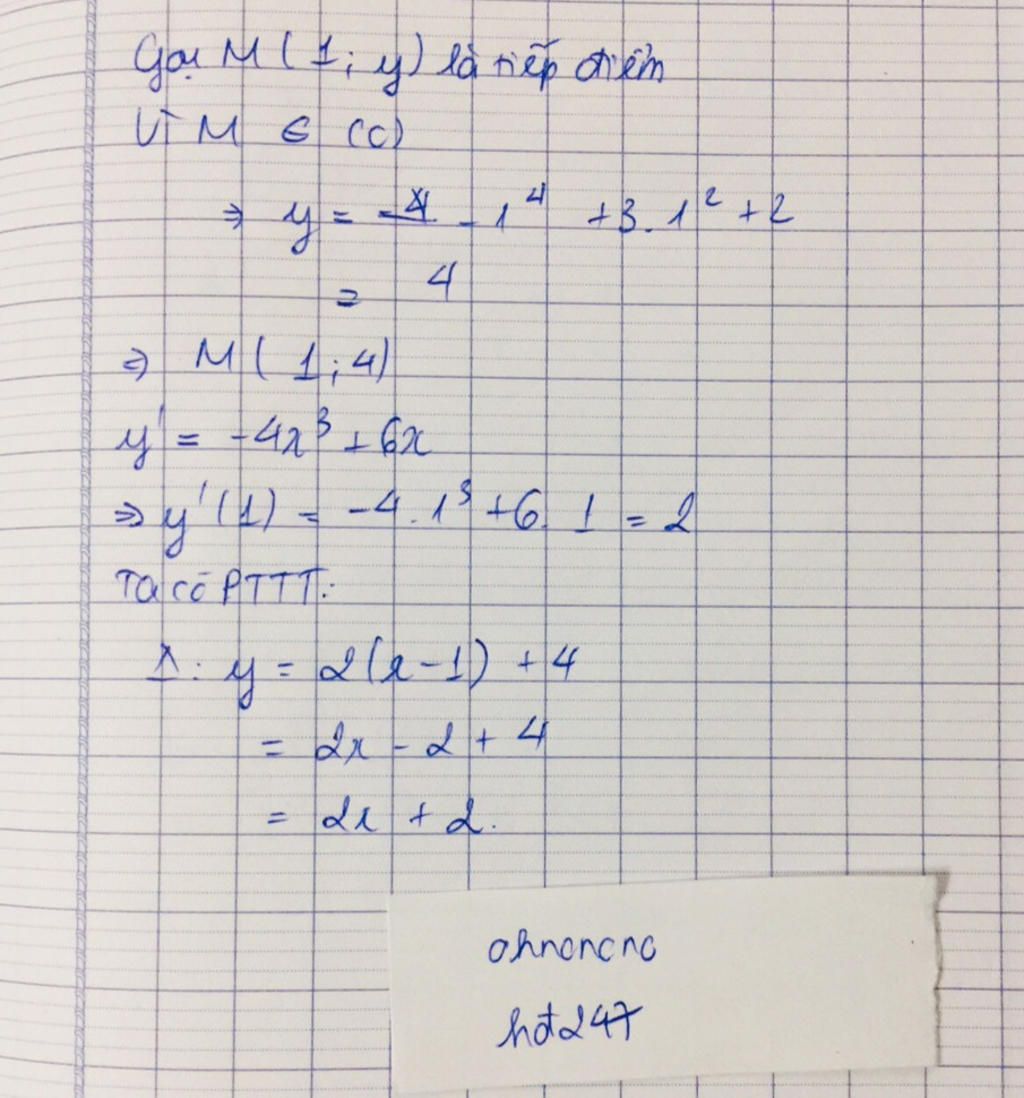 Gọi M ( 1 ; y ) là tiếp điểm
Vì M ∈ (C)
⇒ y = - 1⁴ + 3. 1² + 2
= 4
⇒ M ( 1 ; 4 )
y' = -4x³ + 6x
⇒ y' (1) = -4. 1³ + 6. 1 = 2
Ta có PTTT:
Δ : y = 2(x - 1) + 4
= 2x - 2 + 4
= 2x + 2.
ohncncnc
hđ247